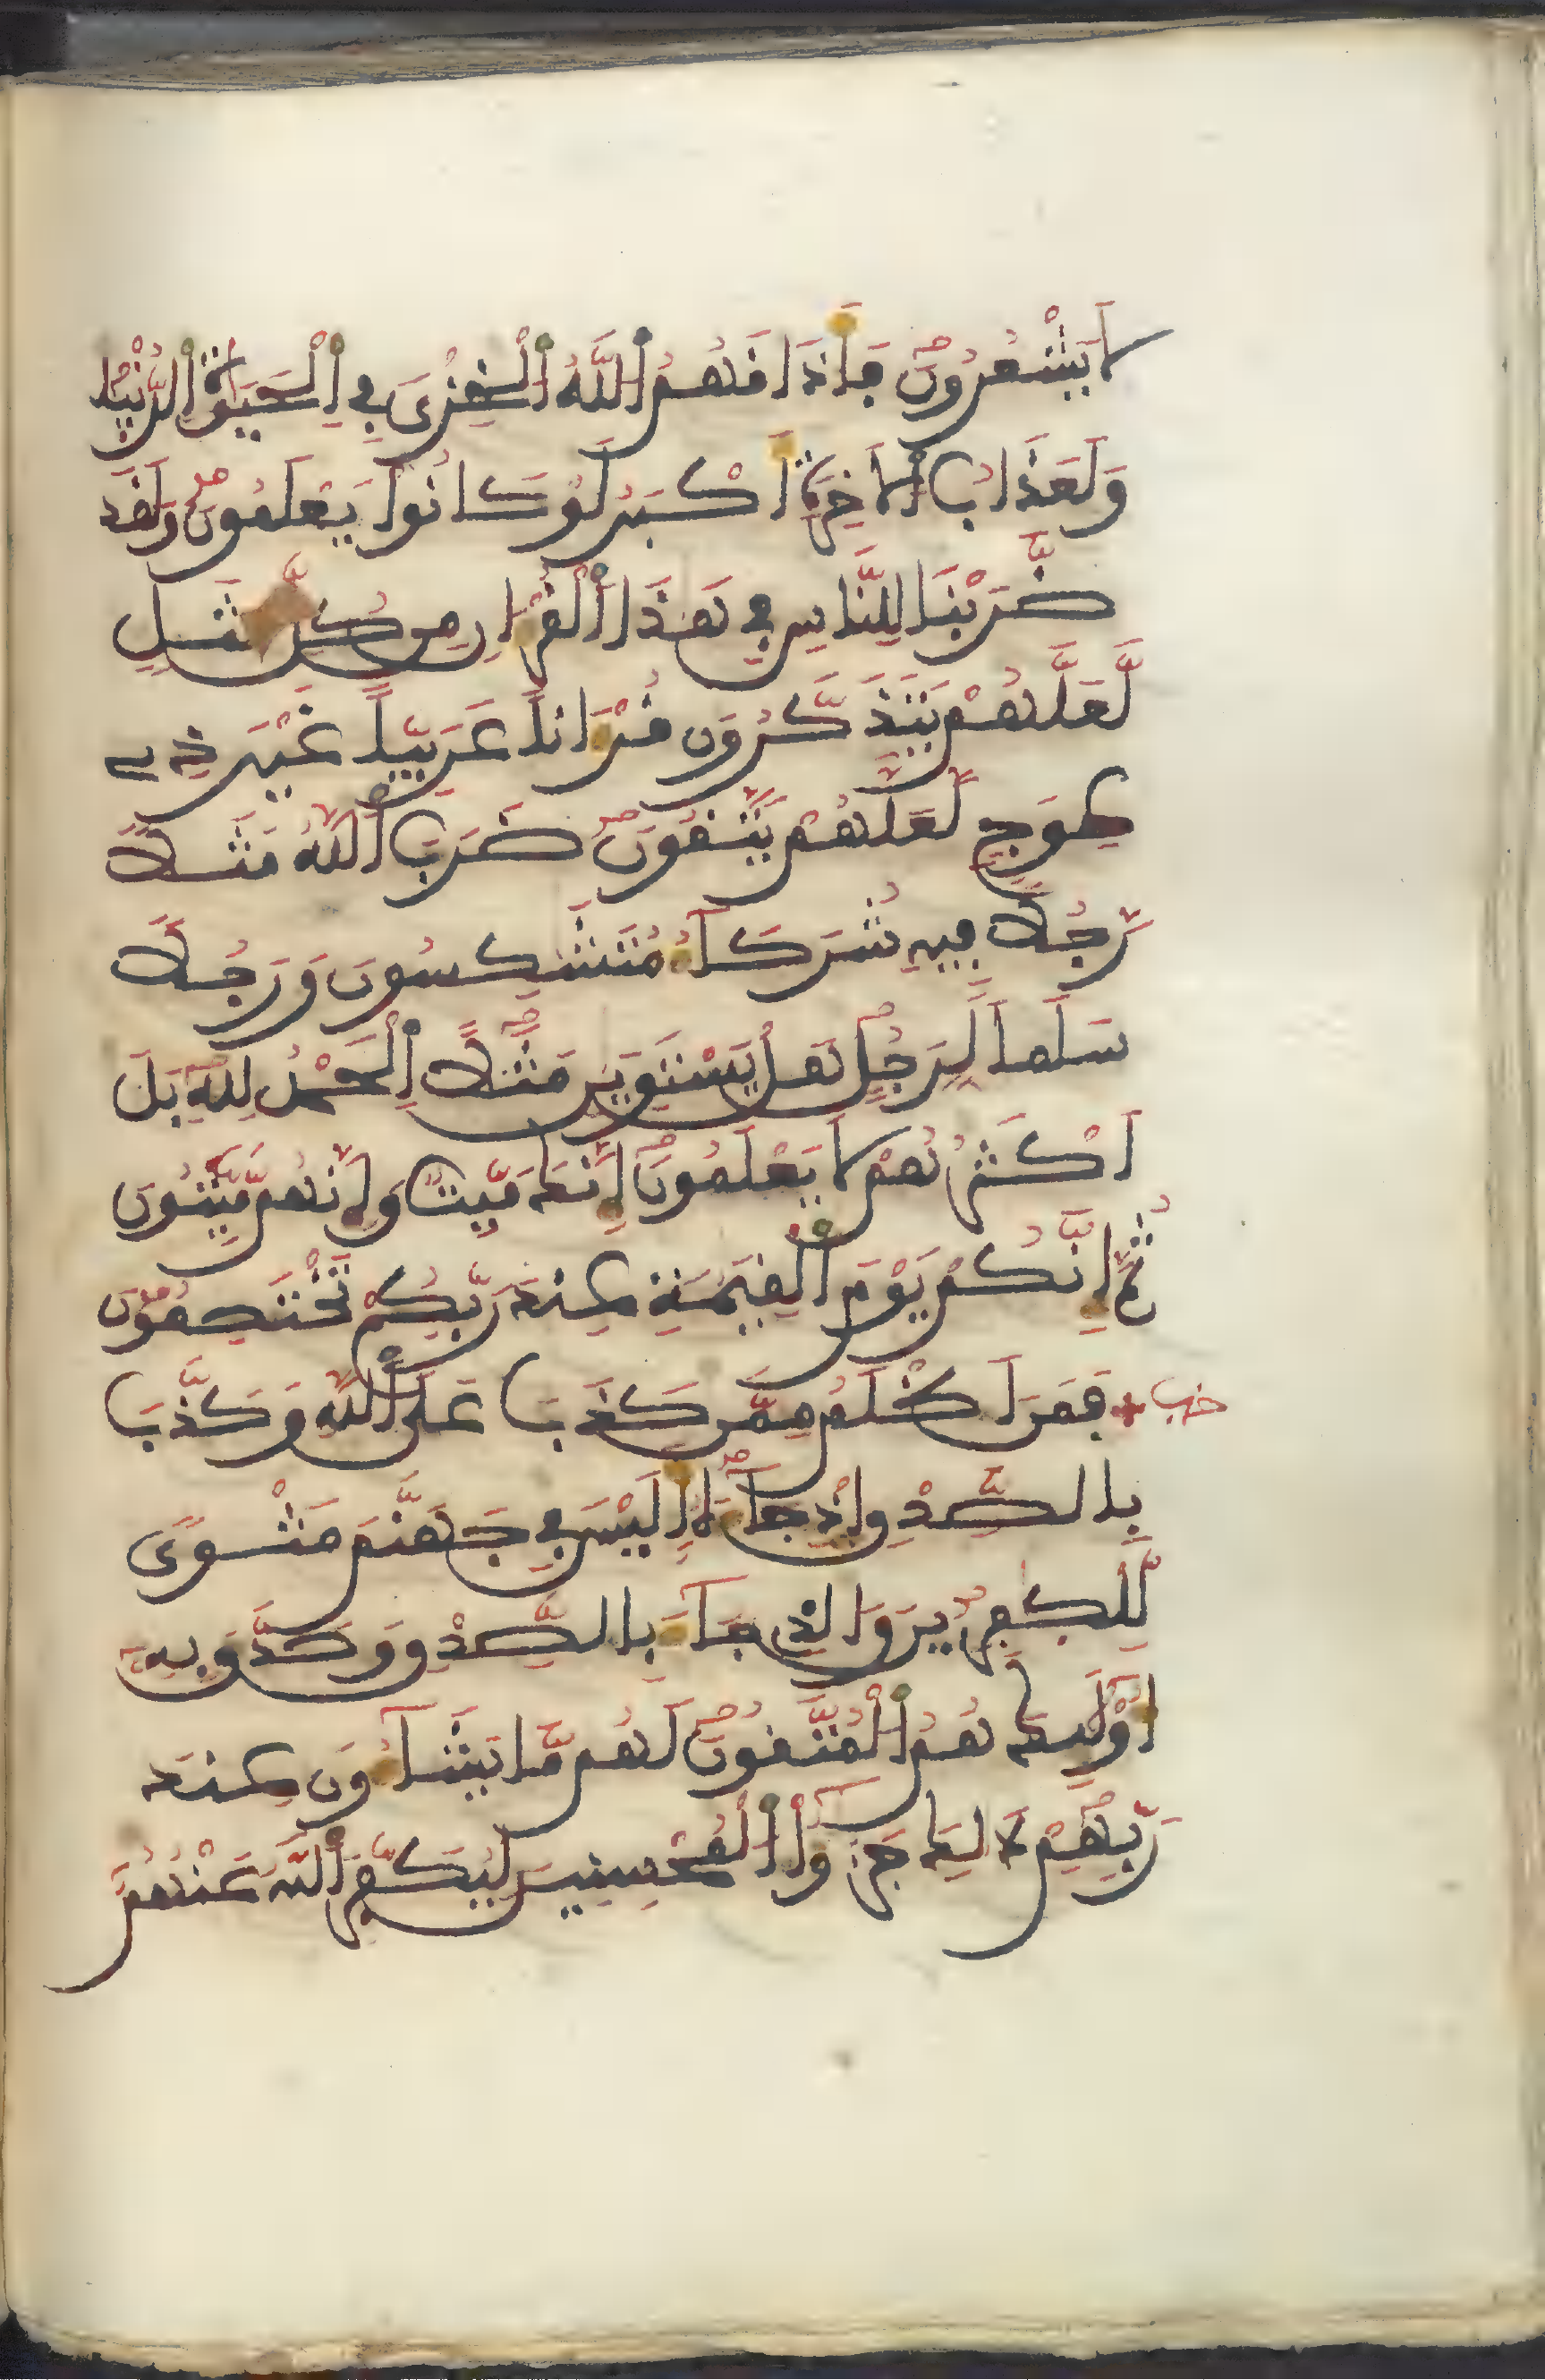 لَا يَشْعُرُونَ فَأَذَاقَهُمُ اللَّهُ الْخِزْيَ فِي الْحَيَوٰةِ الدُّنْيَا
وَلَعَذَابُ الَاخِرَةِ أَكْبَرُ لَوْ كَانُوا يَعْلَمُونَ وَلَقَد
ضَّرَبْنَا لِلنَّاسِ فِي هَٰذَا الْقُرْءَانِ مِن كُلِّ مَثَلٍ
لَّعَلَّهُمْ يَتَذَكَّرُونَ قُرْءَاناً عَرَبِيّاً غَيْرَ ذِے
عِوَجٍ لَّعَلَّهُمْ يَتَّقُونَ ضَرَبَ اللَّهُ مَثَلًا
رَّجُلًا فِيهِ شُرَكَآءُ مُتَشَٰكِسُونَ وَرَجُلًا
سَلَماً لِّرَجُلٍ هَلْ يَسْتَوِيَٰنِ مَثَلًا الْحَمْدُ لِلَّهِ بَلَ
اَكْثَرُهُمْ لَا يَعْلَمُونَ إِنَّكَ مَيِّتٌ وَإِنَّهُم مَّيِّتُونَ
ثُمَّ إِنَّكُمْ يَوْمَ الْقِيَٰمَةِ عِندَ رَبِّكُمْ تَخْتَصِمُونَ
حزب فَمَنَ اَظْلَمُ مِمَّن كَذَبَ عَلَى اللَّهِ وَكَذَّبَ
بِالصِّدْقِ إِذْ جَآءَهُ أَلَيْسَ فِي جَهَنَّمَ مَثْوًى
لِّلْكَٰفِرِينَ وَالَّذِي جَآءَ بِالصِّدْقِ وَصَدَّقَ بِهِ
أُوْلَٰئِكَ هُمُ الْمُتَّقُونَ لَهُم مَّا يَشَآءُونَ عِندَ
رَبِّهِمْ ذَٰلِكَ جَزَٰٓؤُا الْمُحْسِنِينَ لِيُكَفِّرَ اللَّهُ عَنْهُمُ